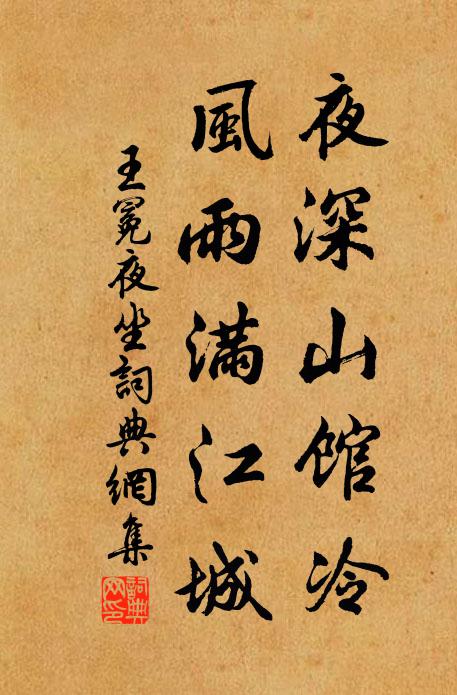 夜深山館冷
風雨滿江城
王冕夜坐詞典網集
詞典網印